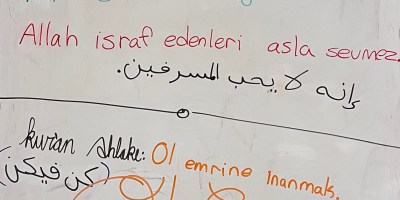 Allah israf edenleri asla sevmez.
إنه لا يحب المسرفين.
kur'an Ahlakı: Ol emrine Inanmak.
(كن فيكن)